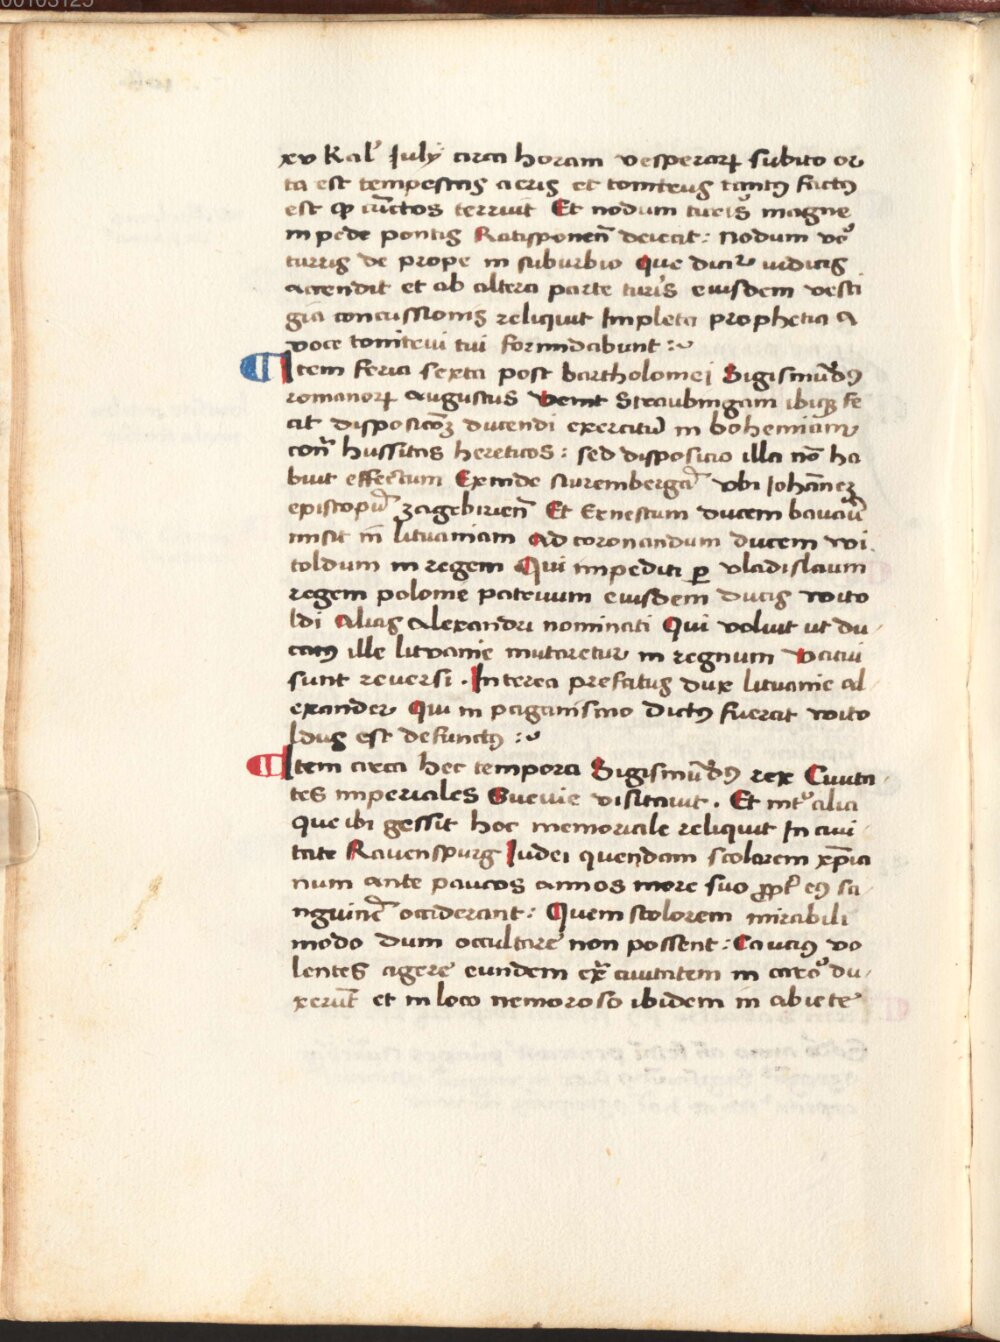 00103125
xv Kal' July circa horam vesperarꝝ subito or
ta est tempestas aeris et tonitrus tantꝰ factꝰ
est ꝙ cūctos terruit Et nodum turis magne
in pede pontis Ratisponen̄ deiecit: Nodum vo
turris de prope in suburbio Que dicit iudicis
accendit et ab altera parte turis eiusdem vesti
gia concussionis reliquit Impleta prophetia a
voce tonitrui tui formidabunt :~
¶ Item feria sexta post bartholomei Sigismūdꝰ
romanorꝝ augustus venit Straubingam ibiqꝫ fe
cit disposicoꝫ ducendi exercitū in bohemiam
contͣ hussitas hereticos: sed disposicio illa nō ha
buit effectum Exinde Nurembergā vbi Johānez
episcopū zagebirien̄ Et Ernestum ducem bavarū
misit in lituaniam Ad coronandum ducem wi
toldum in regem Qui impediti ꝑ vladislaum
regem polonie patruum eiusdem ducis wito
ldi Alias Alexandri nominati Qui voluit ut du
catꝰ ille lituanie mutaretur in regnum Vacui
sunt reversi . Interea prefatus dux lituanie al
exander Qui in paganismo dictꝰ fuerat wito
ldus est defunctꝰ :~
¶ Item circa hec tempora Sigismūdꝰ rex Civita
tes imperiales Suevie visitavit . Et int' alia
que ibi gessit hoc memoriale reliquit In civi
tate Ravenspurg Iudei quendam scolarem xp̄ia
num ante paucos annos more suo ꝓpt' eꝰ sa
nguinē occiderant: Quem scolarem mirabili
modo dum occultare non possent: Caucius vo
lentes agere eundem exͣ civitatem in carͦ du
xerūt et in loco nemoroso ibidem in abiete